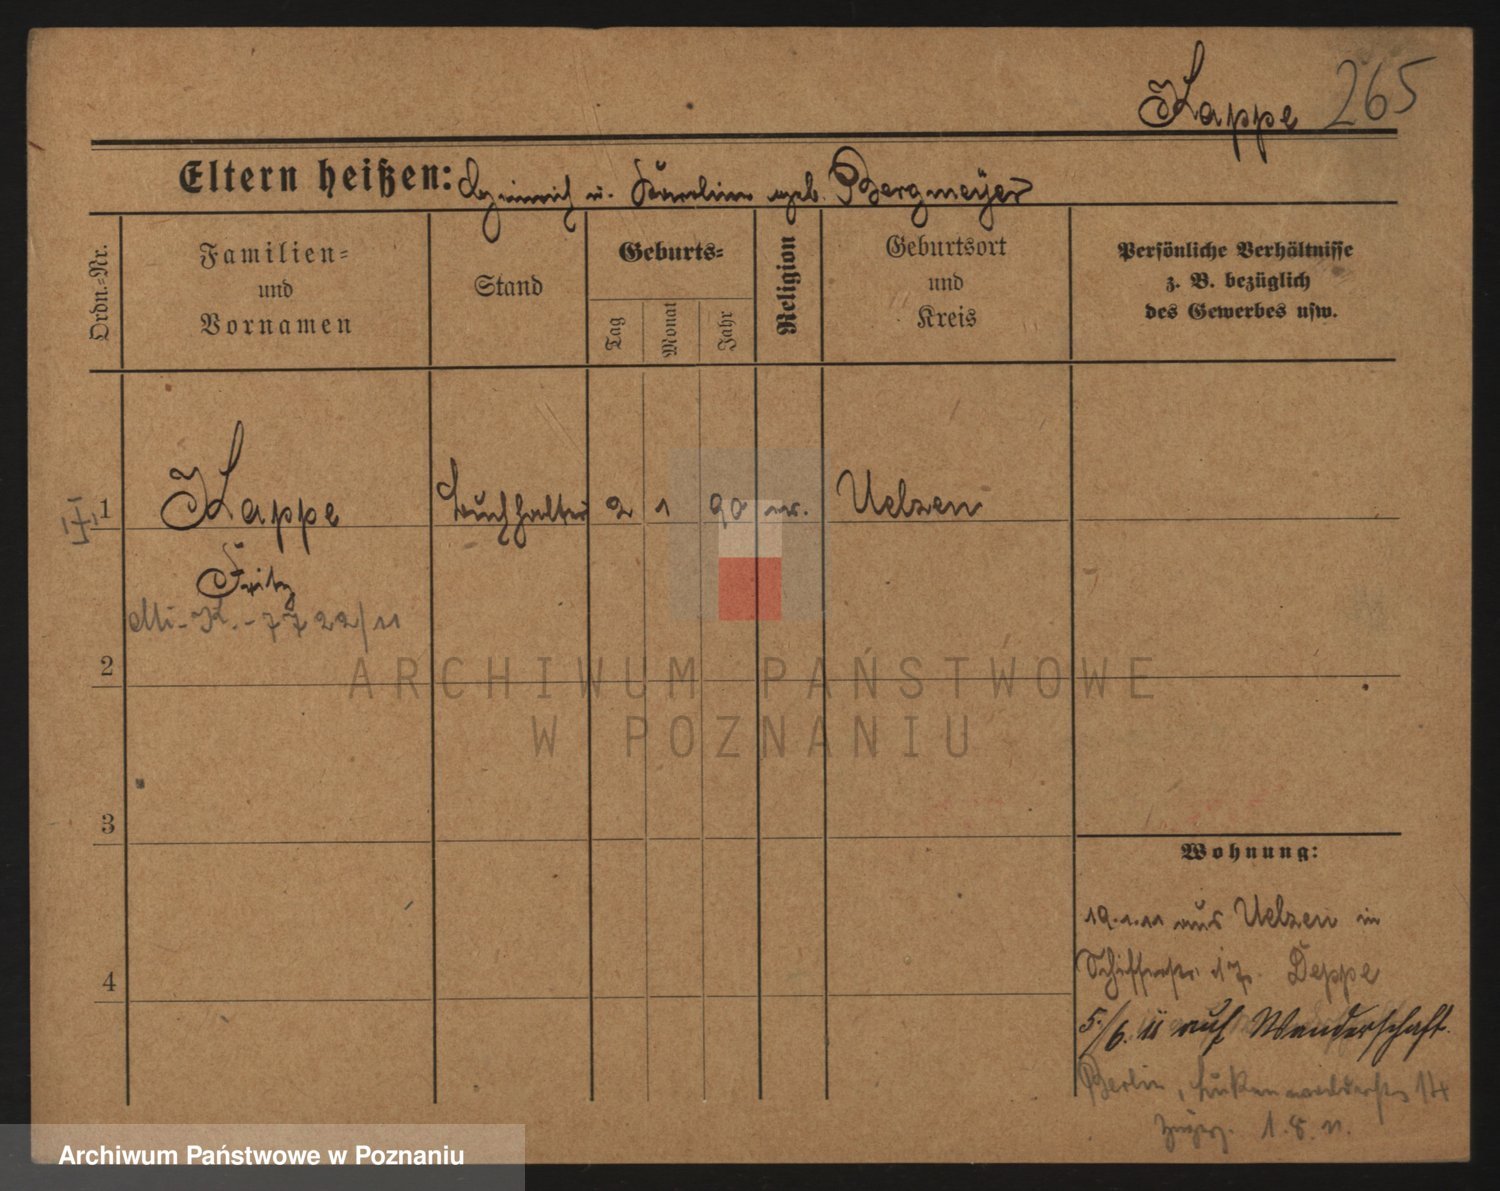 Kappe 265
Eltern heißen: Heinrich u. Karoline geb. Bergmeyer
Ordn.-Nr.
Familien-
und
Vornamen
Stand
Geburts-
Tag
Monat
Jahr
Religion
Geburtsort
und
Kreis
Persönliche Verhältnisse
z. B. bezüglich
des Gewerbes usw.
1 Kappe Buchhalter 2 1 90 ev. Uelzen
Fritz
Mi-K.-7722/11
2
3
4
Wohnung:
19.1.11 aus Uelzen in
Schifferstr. 17. Deppe
5./6. 11 auf Wanderschaft.
Berlin, Luckenwalderstr 14
1.8.11.
ARCHIWUM PAŃSTWOWE
W POZNANIU
Archiwum Państwowe w Poznaniu